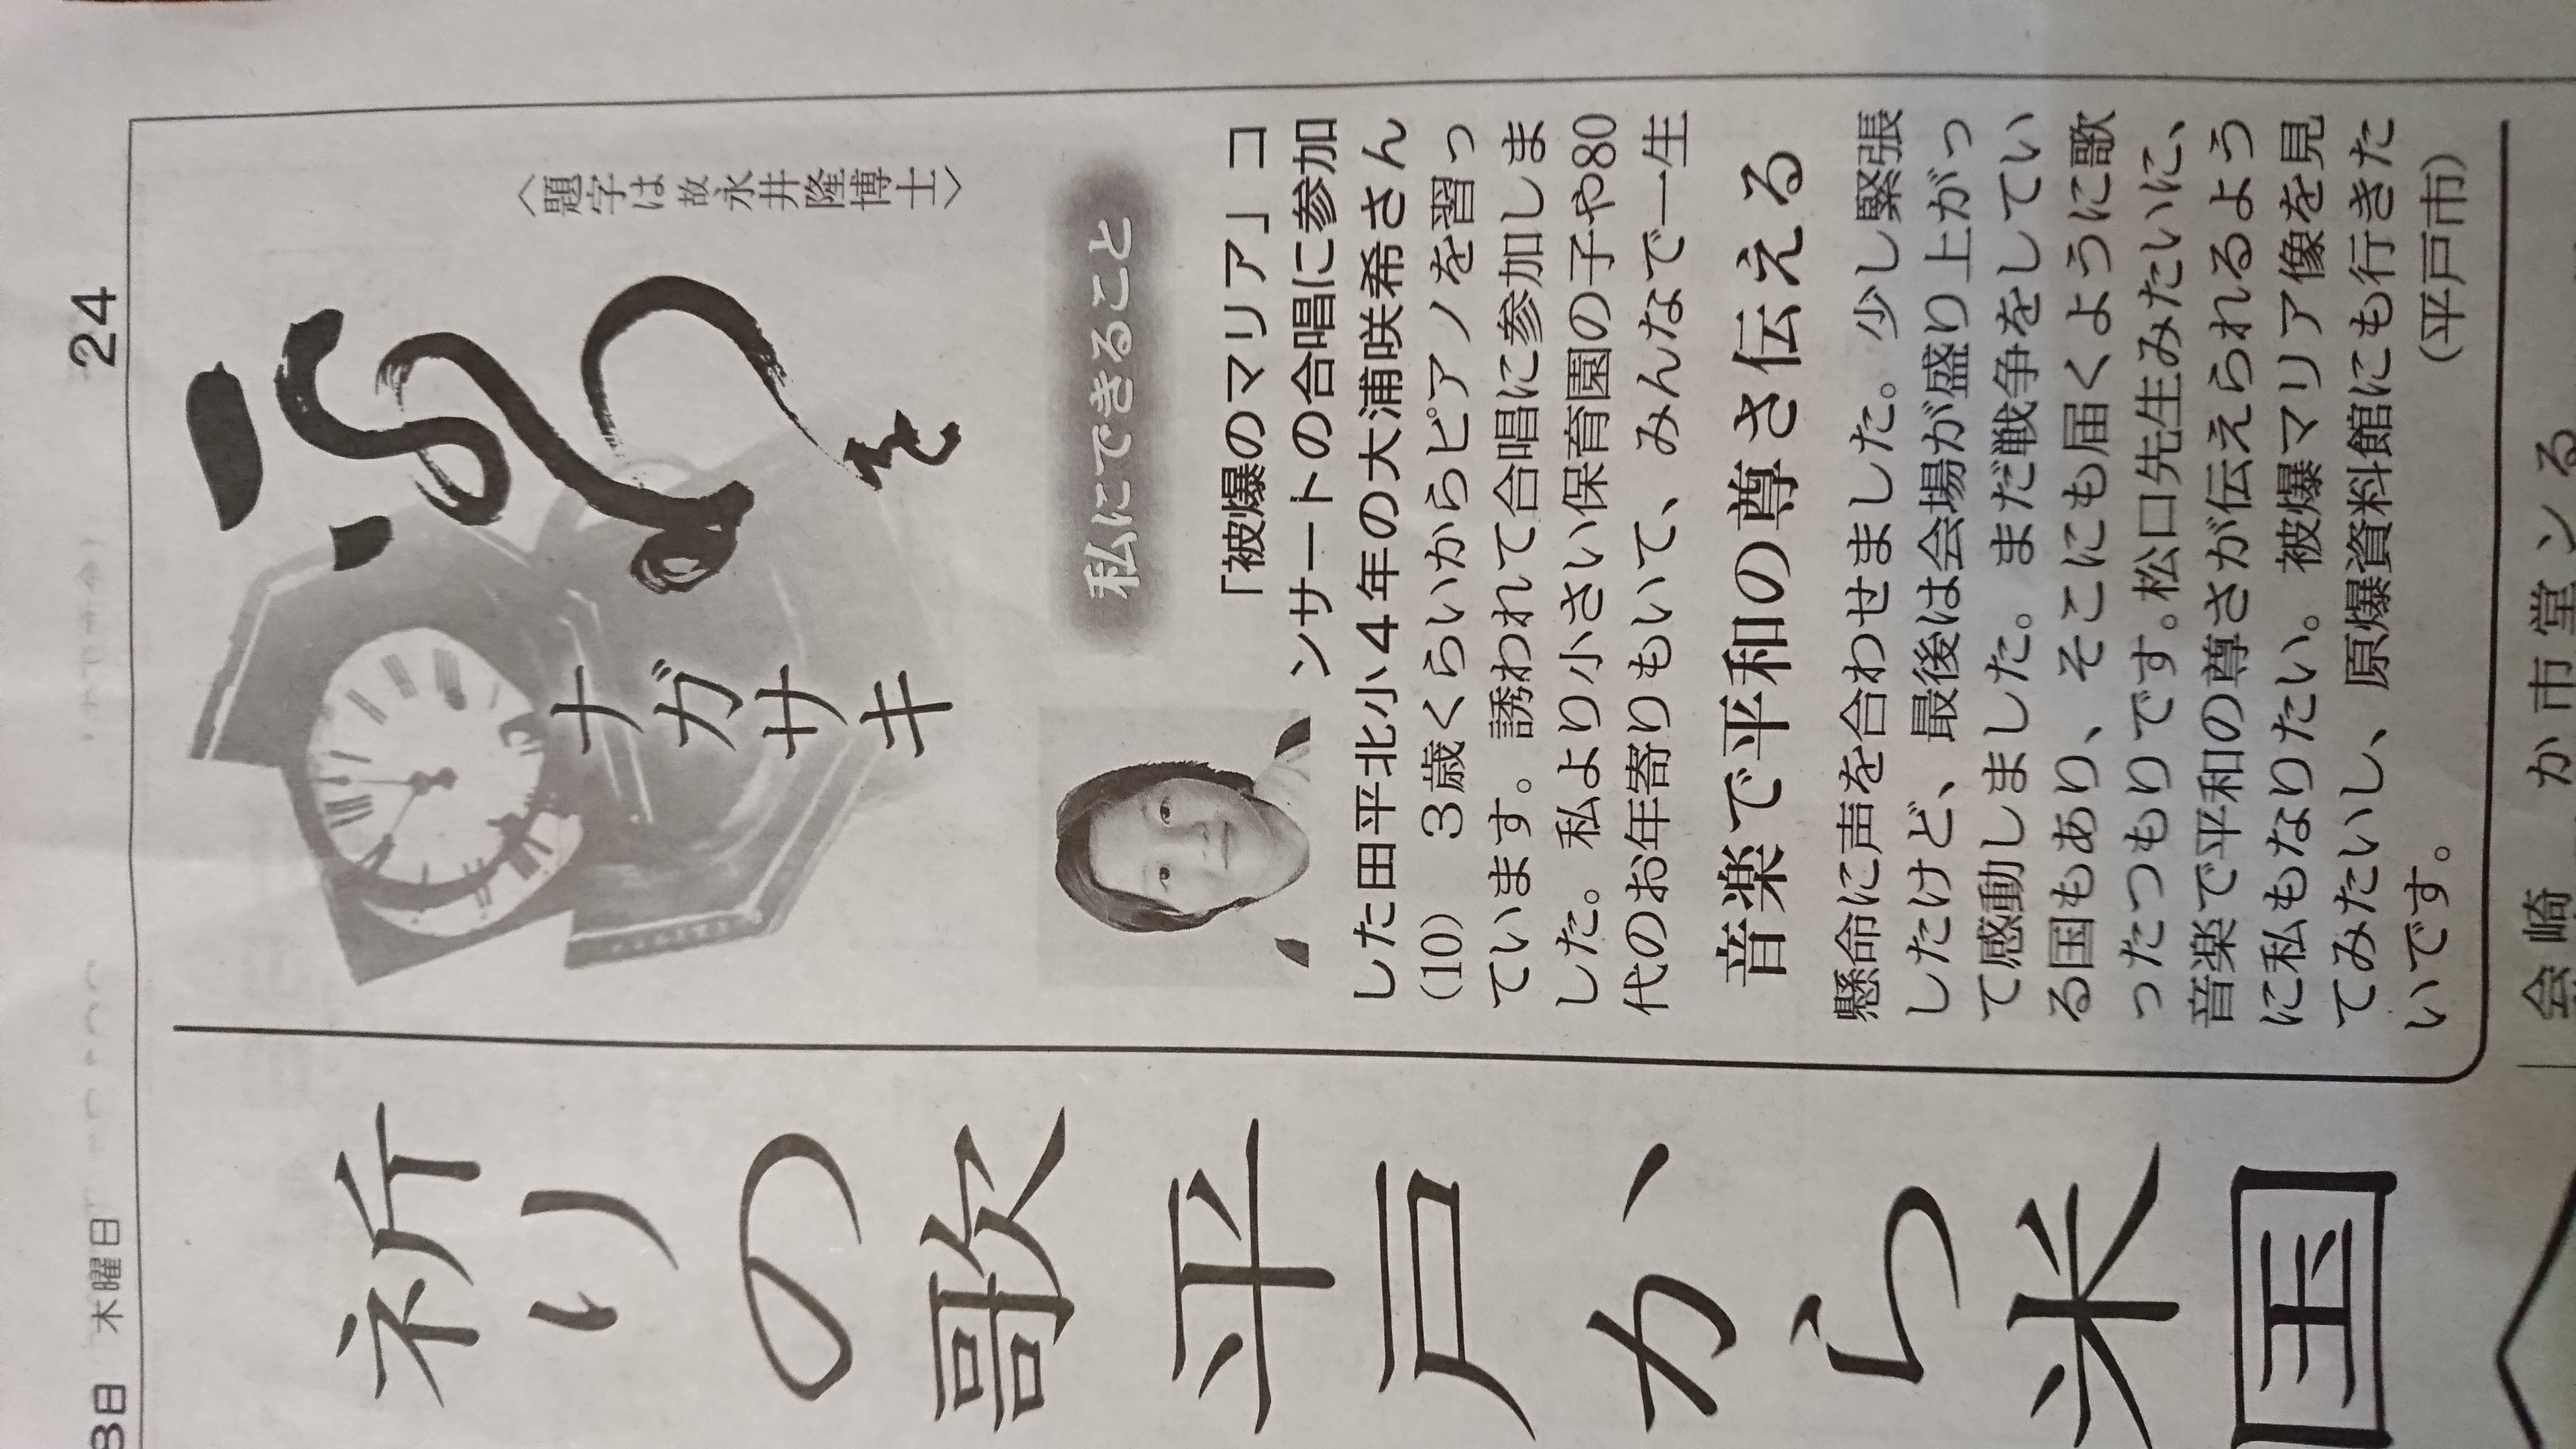 8日 木曜日
24
平和を
ナガサキ
〈題字は故永井隆博士〉
私にできること
「被爆のマリア」コ
ンサートの合唱に参加
した田平北小4年の大浦咲希さん
(10) 3歳くらいからピアノを習っ
ています。誘われて合唱に参加しま
した。私より小さい保育園の子や80
代のお年寄りもいて、みんなで一生
音楽で平和の尊さ伝える
懸命に声を合わせました。少し緊張
したけど、最後は会場が盛り上がっ
て感動しました。まだ戦争をしてい
る国もあり、そこにも届くように歌
ったつもりです。松口先生みたいに、
音楽で平和の尊さが伝えられるよう
に私もなりたい。被爆マリア像を見
てみたいし、原爆資料館にも行きた
いです。
(平戸市)
祈りの歌平戸から米国